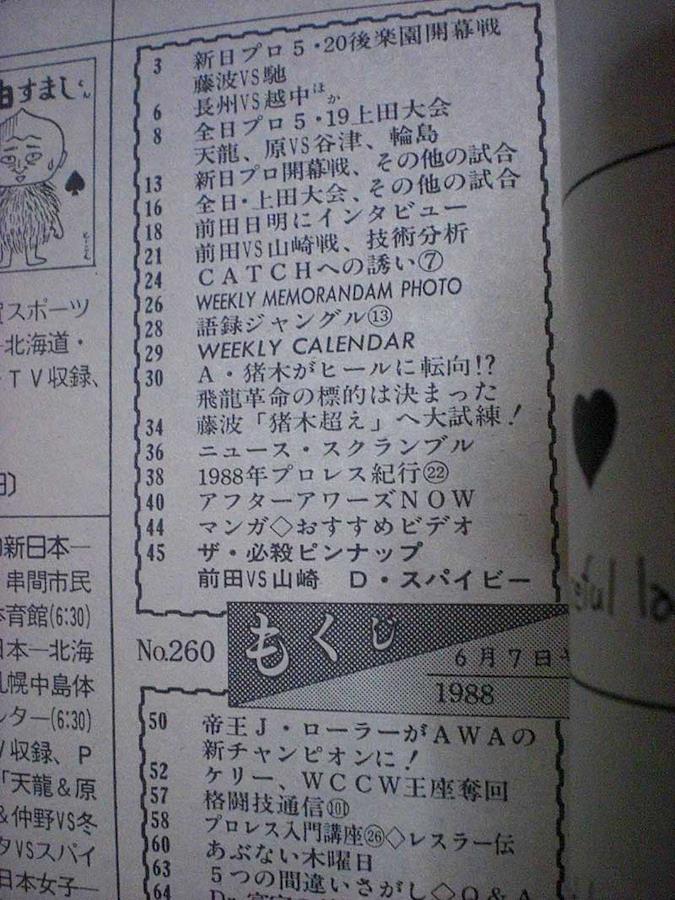 由すましくん
賀スポーツ
北海道・
TV収録、
新日本―
串間市民
体育館(6:30)
日本―北海
札幌中島体
ンター(6:30)
V収録、P
「天龍&原
&仲野VS冬
タVSスパイ
日本女子―
3 新日プロ5・20後楽園開幕戦
藤波VS馳
6 長州VS越中ほか
8 全日プロ5・19上田大会
天龍、原VS谷津、輪島
13 新日プロ開幕戦、その他の試合
16 全日・上田大会、その他の試合
18 前田日明にインタビュー
21 前田VS山崎戦、技術分析
24 CATCHへの誘い⑦
26 WEEKLY MEMORANDAM PHOTO
28 語録ジャングル⑬
29 WEEKLY CALENDAR
30 A・猪木がヒールに転向!?
飛龍革命の標的は決まった
34 藤波「猪木超え」へ大試練!
36 ニュース・スクランブル
38 1988年プロレス紀行㉒
40 アフターアワーズNOW
44 マンガ◇おすすめビデオ
45 ザ・必殺ピンナップ
前田VS山崎 D・スパイビー
もくじ
No.260
6月7日
1988
50 帝王J・ローラーがAWAの
新チャンピオンに!
52 ケリー、WCCW王座奪回
57 格闘技通信(101)
58 プロレス入門講座㉖◇レスラー伝
60 あぶない木曜日
63 5つの間違いさがし◇Q&A
64